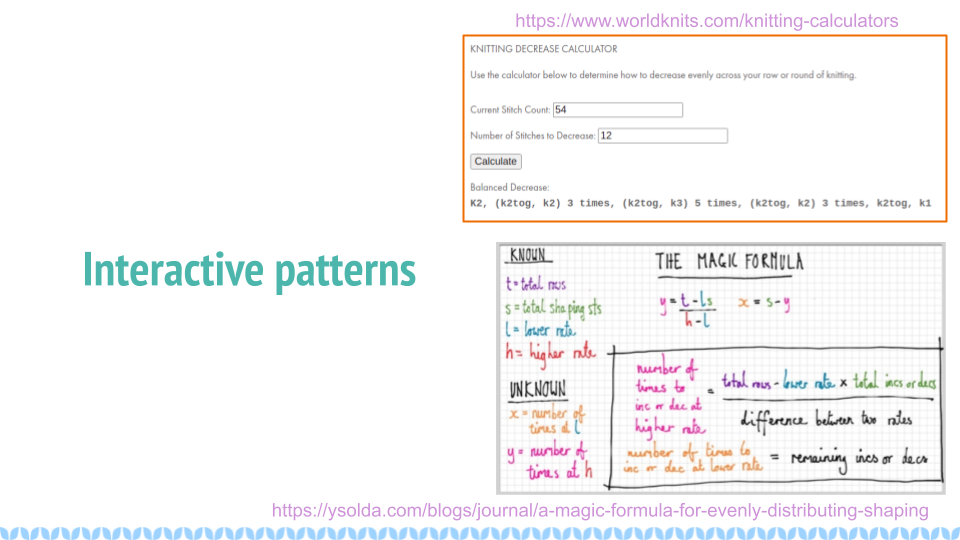 https://www.worldknits.com/knitting-calculators
KNITTING DECREASE CALCULATOR
Use the calculator below to determine how to decrease evenly across your row or round of knitting.
Current Stitch Count: 54
Number of Stitches to Decrease: 12
Calculate
Balanced Decrease:
K2, (k2tog, k2) 3 times, (k2tog, k3) 5 times, (k2tog, k2) 3 times, k2tog, k1
Interactive patterns
KNOWN
t = total rows
s = total shaping sts
l = lower rate
h = higher rate
UNKNOWN
x = number of
times at l
y = number of
times at h
THE MAGIC FORMULA
y = t - ls
h - l
x = s - y
number of
times to
inc or dec at
higher rate
=
total rows - lower rate x total incs or decs
difference between two rates
number of times to
inc or dec at lower rate
= remaining incs or decs
https://ysolda.com/blogs/journal/a-magic-formula-for-evenly-distributing-shaping